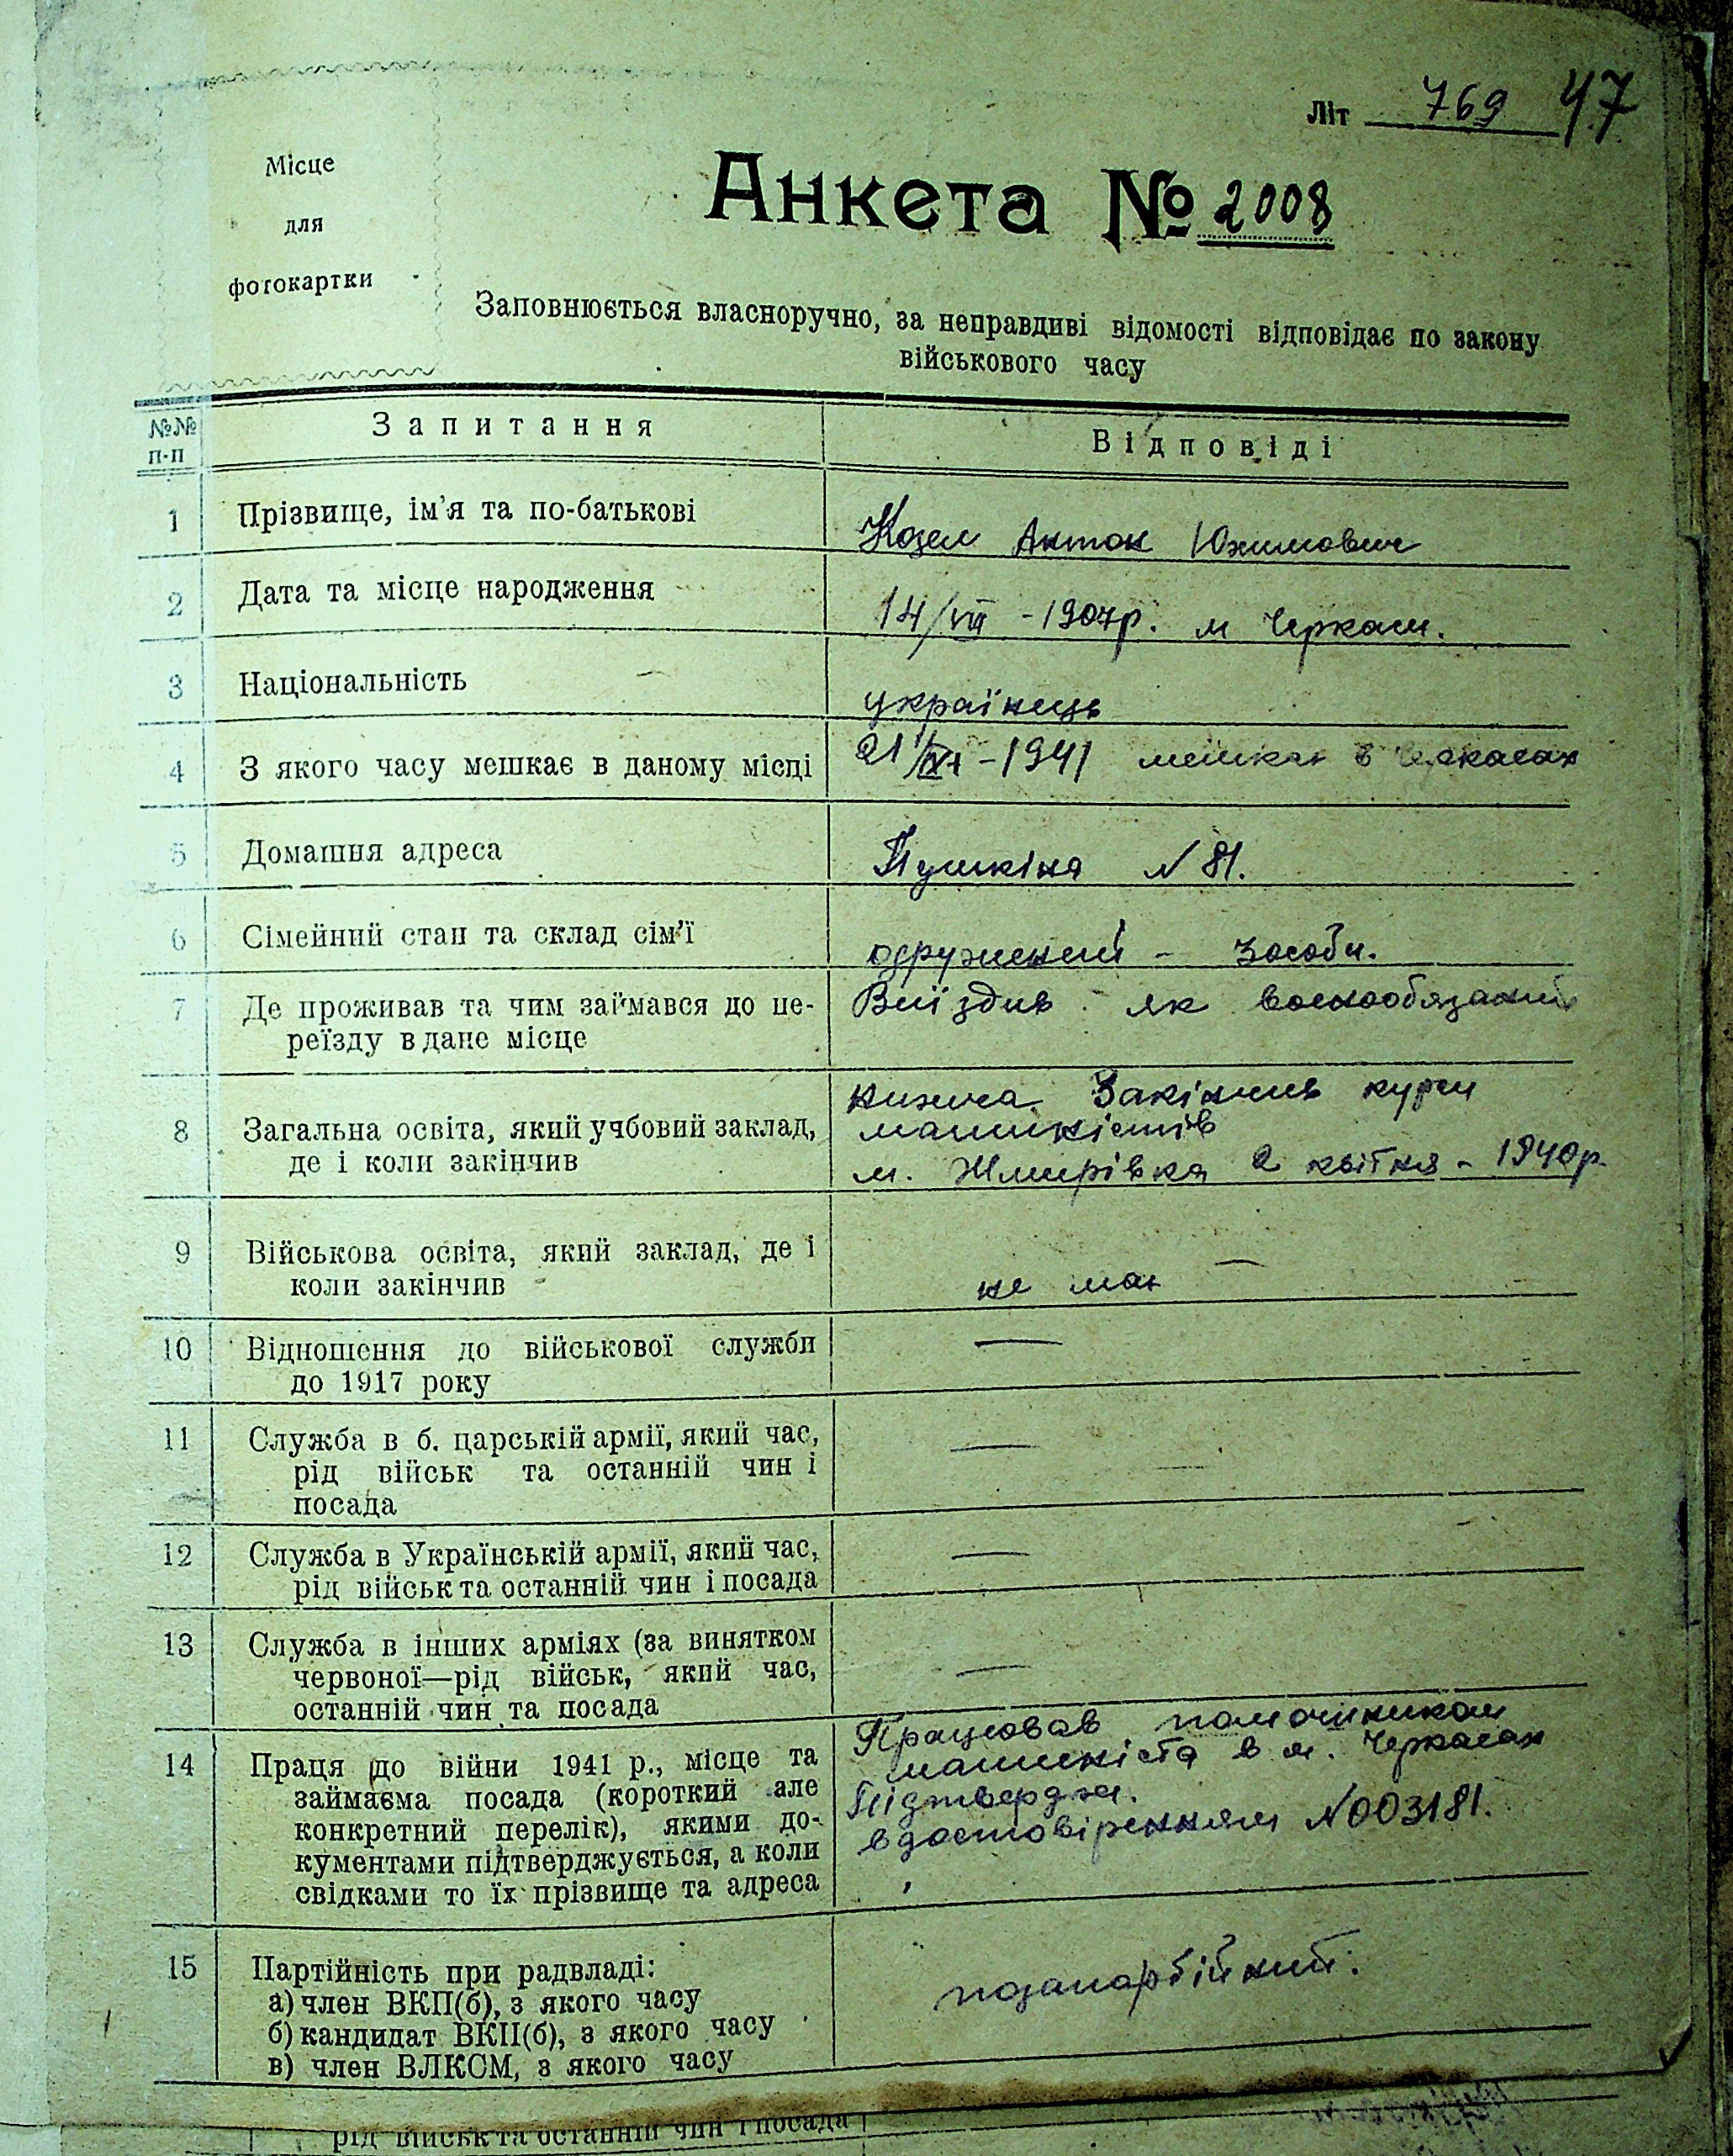 Літ 769 47
Місце
для
фотокартки
Анкета № 2008
Заповнюється власноручно, за неправдиві відомості відповідає по закону
військового часу
№№
п-п
Запитання
Відповіді
1 Прізвище, ім'я та по-батькові
Козел Антон Юхимович
2 Дата та місце народження
14/VII - 1907р. м Черкаси.
3 Національність
українець
4 З якого часу мешкає в даному місці
21/XI - 1941 мешкає в Черкасах
5 Домашня адреса
Пушкіна N 81.
6 Сімейний стан та склад сім'ї
одружений - 3 особи.
7 Де проживав та чим займався до пе-
реїзду в дане місце
Виїздив як воєнообязаний
8 Загальна освіта, який учбовий заклад,
де і коли закінчив
нижча. Закінчив курси
машиністів
м. 2 квітня - 1940р.
9 Військова освіта, який заклад, де і
коли закінчив
не має —
10 Відношення до військової служби
до 1917 року
—
11 Служба в б. царській армії, який час,
рід військ та останній чин і
посада
—
12 Служба в Українській армії, який час,
рід військ та останній чин і посада
—
13 Служба в інших арміях (за винятком
червоної—рід військ, який час,
останній чин та посада
—
14 Праця до війни 1941 р., місце та
займаєма посада (короткий але
конкретний перелік), якими до-
кументами підтверджується, а коли
свідками то їх прізвище та адреса
Працював помочником
машиніста в м. Черкасах
Підтвердж.
вдостовіренням N003181.
15 Партійність при радвладі:
а) член ВКП(б), з якого часу
б) кандидат ВКП(б), з якого часу
в) член ВЛКСМ, з якого часу
позапартійний.
рід військ та останній чин і посада